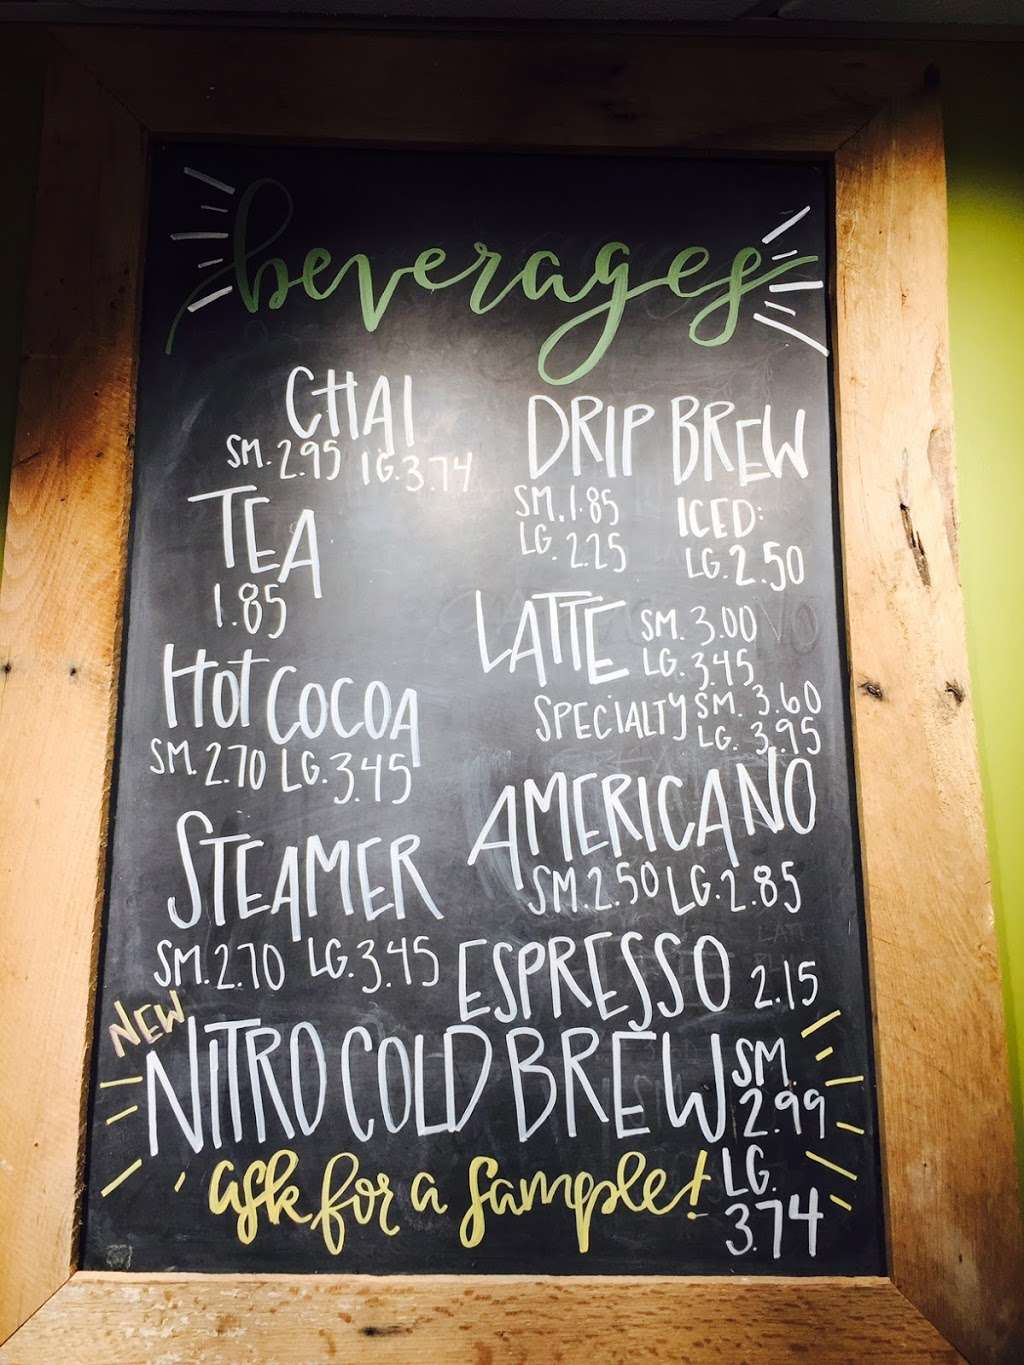 beverages
CHAI
SM. 2.95 LG. 3.74
TEA
1.85
HOT COCOA
SM. 2.70 LG. 3.45
STEAMER
SM. 2.70 LG. 3.45
DRIP BREW
SM. 1.85
LG. 2.25
ICED:
LG. 2.50
LATTE SM. 3.00
LG. 3.45
SPECIALTY SM. 3.60
LG. 3.95
AMERICANO
SM. 2.50 LG. 2.85
ESPRESSO 2.15
NEW
NITRO COLD BREW
SM. 2.99
LG. 3.74
ask for a sample!